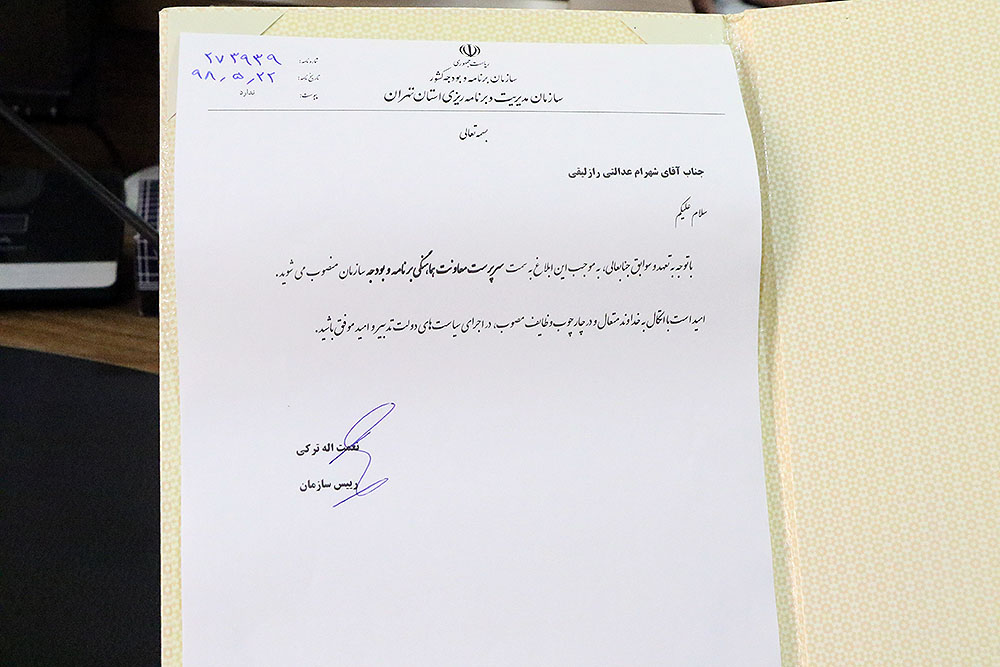 ریاست جمهوری
سازمان برنامه و بودجه کشور
سازمان مدیریت و برنامه ریزی استان تهران
شماره نامه: ۲۷۳۹۳۹
تاریخ نامه: ۹۸,۵,۲۲
پیوست: ندارد
بسمه تعالی
جناب آقای شهرام عدالتی رازلیقی
سلام علیکم
با توجه به تعهد و سوابق جنابعالی، به موجب این ابلاغ به سمت سرپرست معاونت هماهنگی برنامه و بودجه سازمان منصوب می شوید.
امید است با اتکال به خداوند متعال و در چارچوب وظایف مصوب، در اجرای سیاست های دولت تدبیر و امید موفق باشید.
نعمت اله ترکی
رییس سازمان